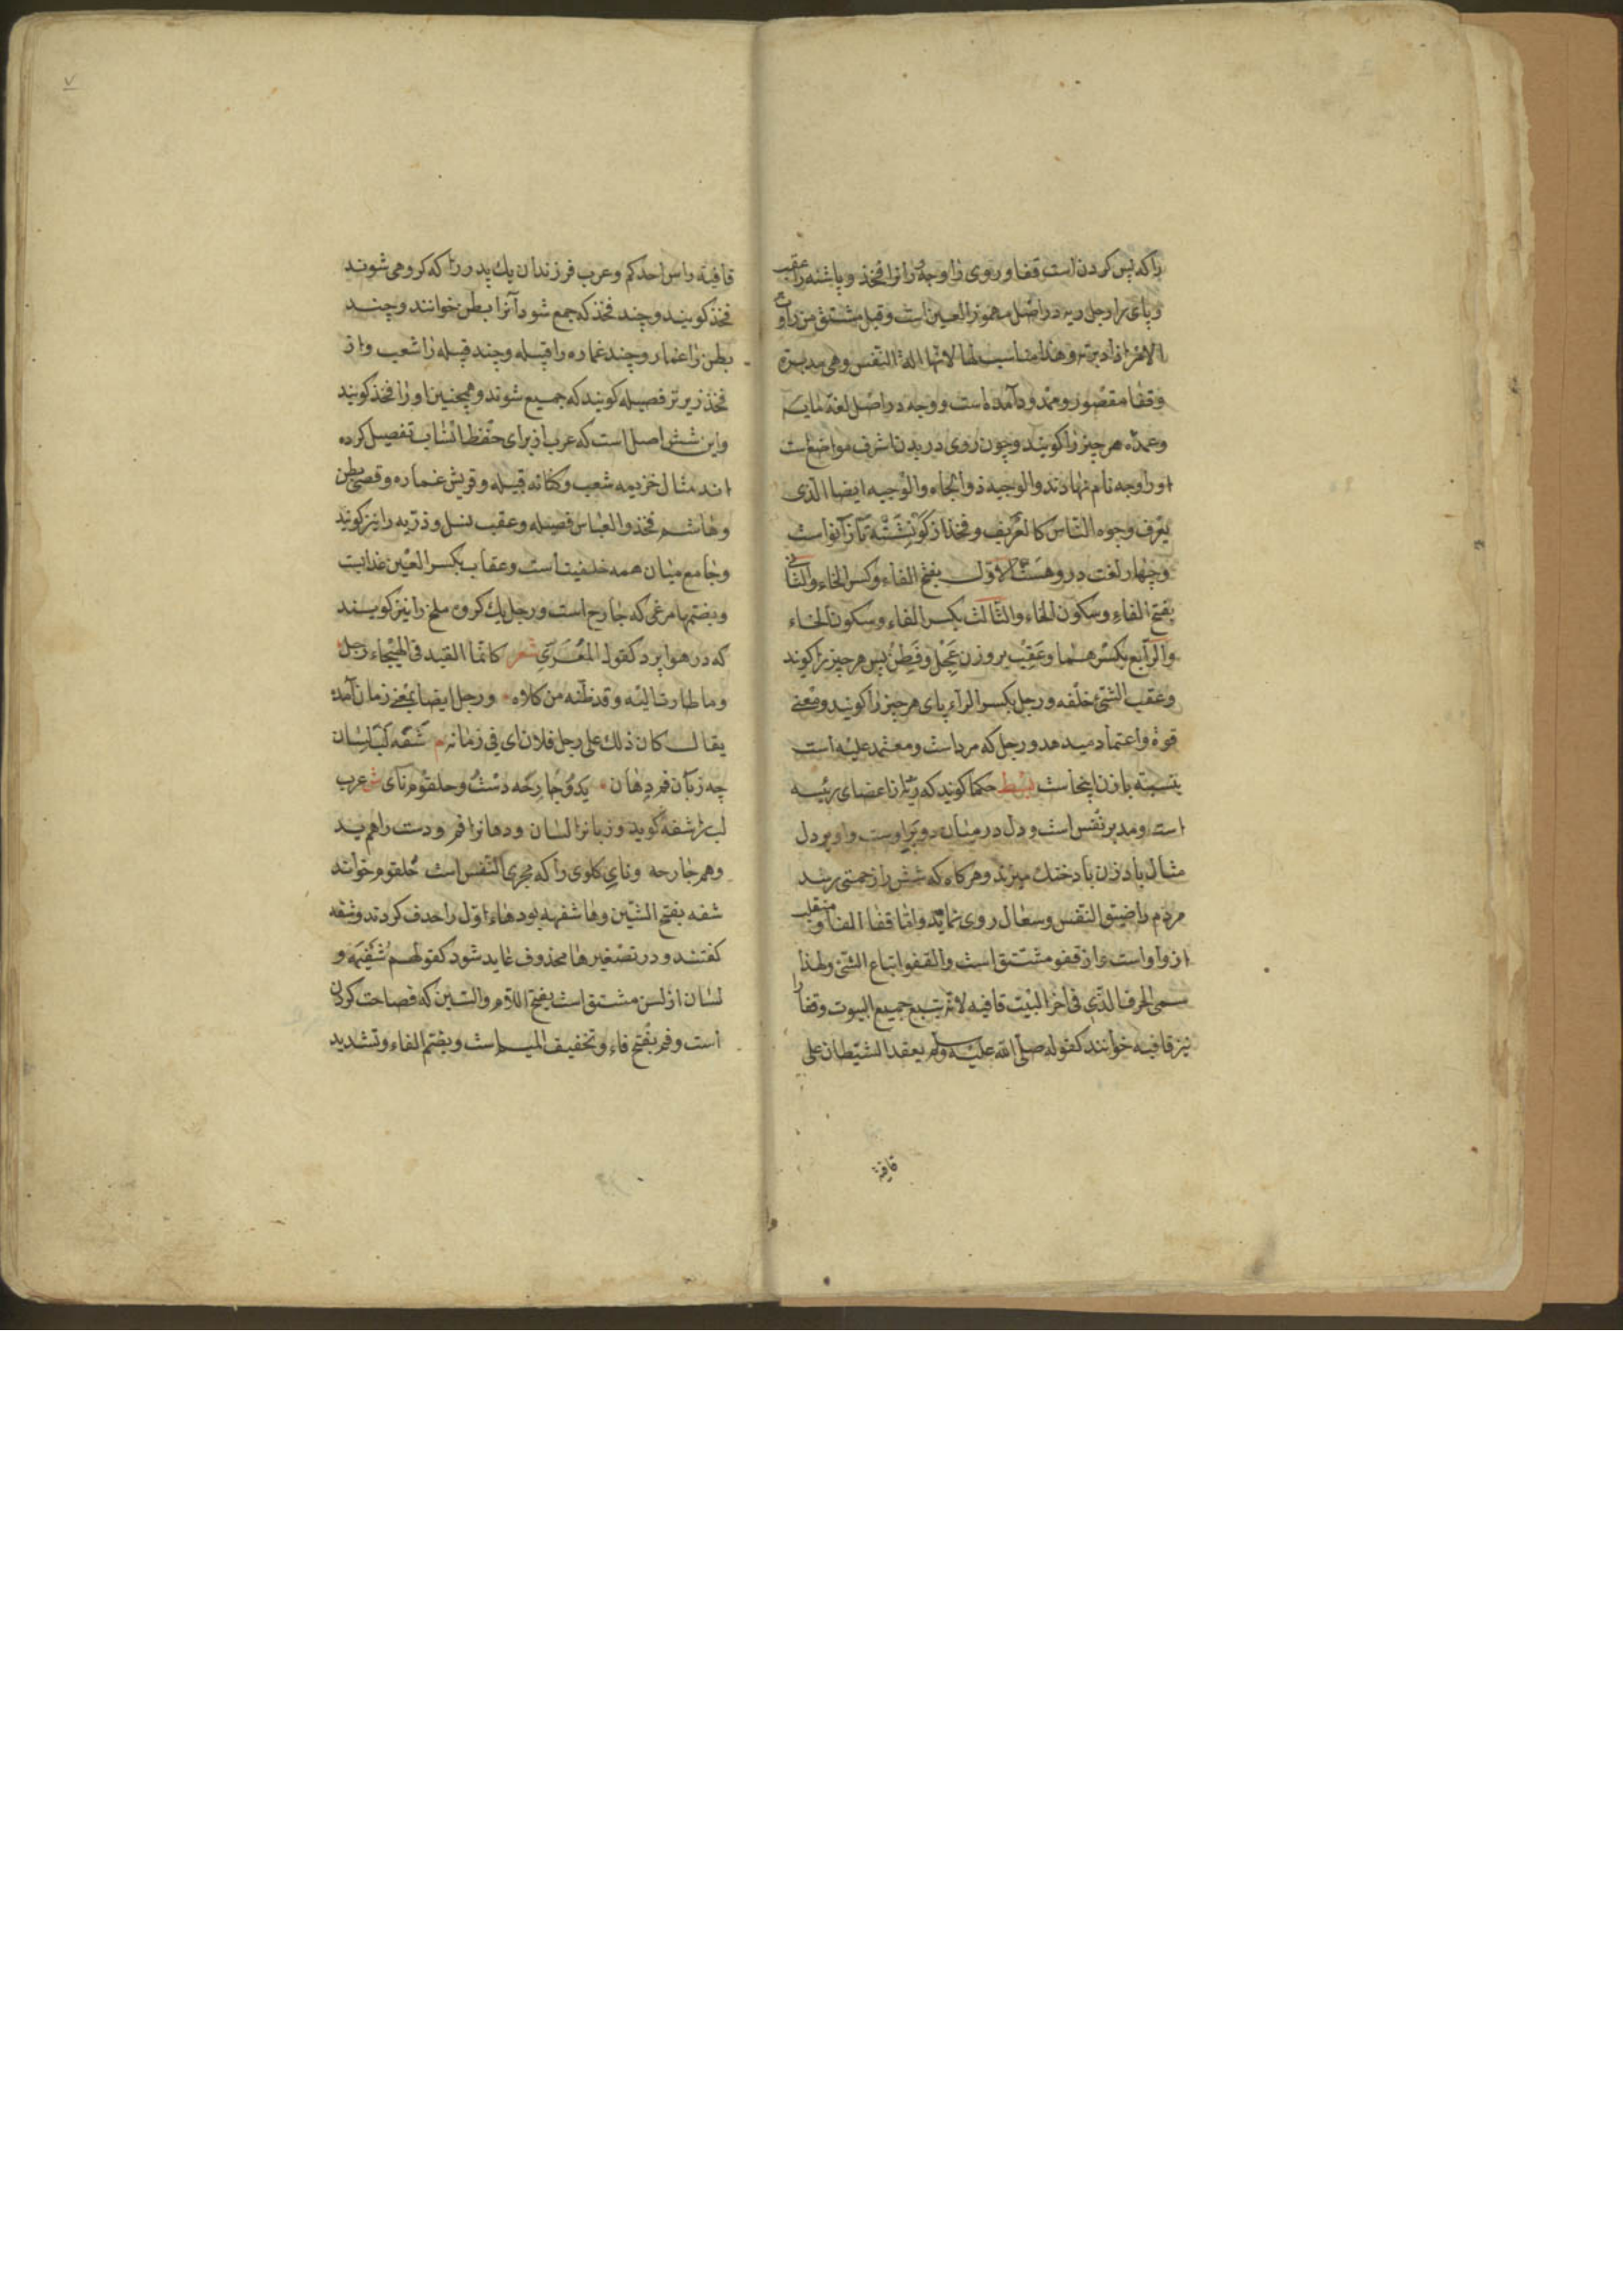 را که پس کردن است قفا و روی را وجه و رانرا فخذ و پاشنه را عقب
و پای را رجل و ریه در اصل مهموز العین است وقیل مشتق من راوت
الامر اذا دبرته وهذا مناسب لها لانها الة النفس وهی مدبرة
وقفا مقصور و ممدود آمده است و وجه در اصل لغة مایه
وعمده هر چیز را کویند و چون روی در بدن اشرف مواضع است
او را وجه نام نهادند والوجیه ذوالجاه والوجیه ایضا الذی
یعرف وجوه الناس کالعریف و فخذ از کون نشسته تا زانو است
وچهار لغت در و هست الاول بفتح الفاء وکسر الخاء والثانی
بفتح الفاء وسکون الخاء والثالث بکسر الفاء وسکون الخاء
والرابع بکسرهما وعقب بر وزن عجل و فطن پس هر چیز را کویند
وعقب الشئ خلفه ورجل بکسر الراء پای هر چیز را کویند ومعنی
قوة واعتماد میدهد و رجل که مرد است ومعتمد علیه است
بنسبة با زن اینجاست بسط حکما کویند که ریه از اعضای رئیسه
است ومدبر نفس است و دل در میان دو پر اوست واو بر دل
مثال بادزن باد خنک میزند وهر کاه که شش را زحمتی رسد
مردم را ضیق النفس وسعال روی نماید واما قفا الف او منقلب
از واو است و از قفو مشتق است والقفو اتباع الشئ ولهذا
سمی الحرف الذی فی آخر البیت قافیه لانه یتبع جمیع البیوت وقفا را
نیز قافیه خوانند کقوله صلی الله علیه وسلم یعقد الشیطان علی
قافیة
٧
قافیة راس احدکم وعرب فرزندان یك پدر را که کروهی شوند
فخذ کویند و چند فخذ که جمع شود آنرا بطن خوانند و چند
بطن را عماره و چند عماره را قبیله و چند قبیله را شعب و از
فخذ زیرتر فصیله کویند که جمیع شوند وهمچنین او را فخذ کویند
واین شش اصل است که عرب از برای حفظ انساب تفصیل کرده
اند مثال خزیمه شعب وکنانه قبیله و قریش عماره وقصی بطن
وهاشم فخذ والعباس فصیله وعقب نسل و ذریه را نیز کویند
وجامع میان همه خلفیت است وعقاب بکسر العین عذابت
وبضمها مرغی که جارح است و رجل یك کروه ملخ را نیز کویند
که در هوا پرد کقول المعری شعر کانما القید فی الهیجاء رجل
وما طارت الیه وقد ظنه من کلاه ورجل ایضا بمعنی زمان آمده
یقال کان ذلك علی رجل فلان ای فی زمانه م شفه لب لسان
چه زبان فم دهان ید و جارحه دست و حلقوم نای ش عرب
لب را شفه کوید و زبانرا لسان و دهانرا فم و دست را هم ید
وهم جارحه و نای کلوی را که مجری النفس است حلقوم خوانند
شفه بفتح الشین وها شفهه بود هاء اول را حذف کردند و شفه
کفتند و در تصغیر ها محذوف عاید شود کقولهم شفیهه و
لسان از لسن مشتق است بفتح اللام والسین که فصاحت کردن
است و فم بفتح فاء وتخفیف المیم است وبضم الفاء وتشدید